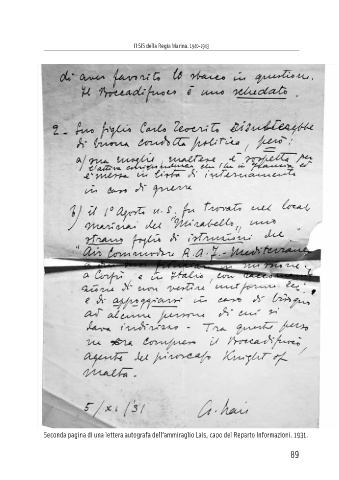 Il SIS della Regia Marina. 1940-1943
di aver favorito lo sbarco in questione.
Il Boccadifuoco è uno schedato.
2 - Suo figlio Carlo Teocrito
di buona condotta politica, però:
a) sua moglie maltese, è sospetta per
è messa in lista di internamento
in caso di guerra
b) il 1° Agosto u.s. fu trovato nel local
marinai del "Mirabello", uno
strano foglio di istruzioni del
"Air Commodore R.A.F. - Mediterranean
a Corfù e in Italia con
zione di non vestire uniforme
e di appoggiarsi in caso di bisogno
ad alcune persone di cui si
dava indirizzo - Tra queste perso
ne era compreso il Boccadifuoco,
agente del piroscafo Knight of
Malta.
5/XI/31 G. Lais
Seconda pagina di una lettera autografa dell'ammiraglio Lais, capo del Reparto Informazioni. 1931.
89